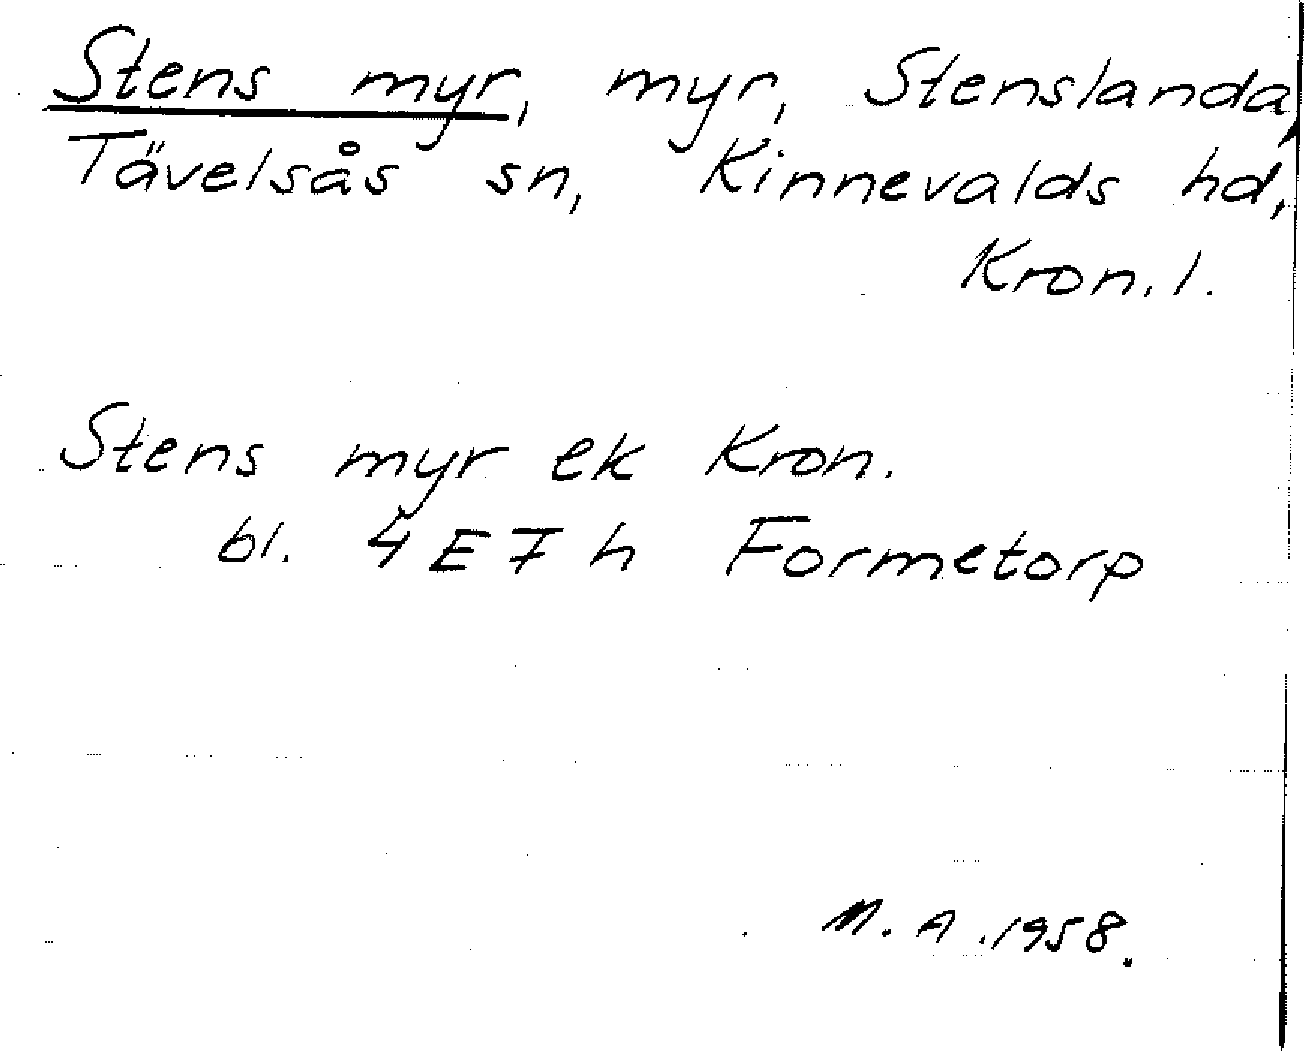 Stens myr, myr, Stenslanda,
Tävelsås sn, Kinnevalds hd,
Kron. l.
Stens myr ek Kron.
bl. 4 E 7 h Formetorp
M. A. 1958.